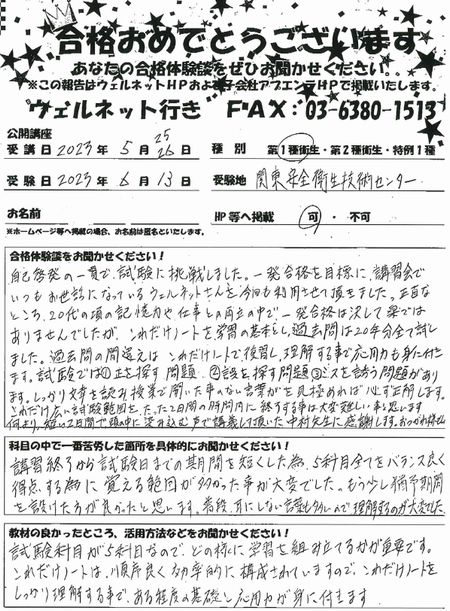 合格おめでとうございます
あなたの合格体験談をぜひお聞かせください。
※この報告はウェルネットHPおよび子会社アプエンテHPで掲載いたします。
ウェルネット行き FAX:03-6380-1513
公開講座
受講日 2023年 5月 25 26日 種別 第1種衛生・第2種衛生・特例1種
受験日 2023年 6月 13日 受験地 関東安全衛生技術センター
お名前 HP等へ掲載 可・不可
※ホームページ等へ掲載の場合、お名前は匿名といたします。
合格体験談をお聞かせください!
自己啓発の一貫で、試験に挑戦しました。一発合格を目標に講習会で
いつもお世話になっているウェルネットさんを今回も利用させて頂きました。正直な
ところ、20代の頃の記憶力や仕事との両立の中で一発合格は決して楽では
ありませんでしたが、これだけノートを学習の基本とし、過去問は20年分全て試し
ました。過去問の間違えは、これだけノートで復習し、理解する事で応用力も身に付きま
す。試験では①正を探す問題、②誤を探す問題③ミスを誘う問題があり
ます。しっかり文章を読み授業で聞いた事のない言葉がを見極めれば必ず正解します。
これだけ広い試験範囲を、たった2日間の時間内に終了する事は大変難しい事と思います
何より、短い2日間で頭の中に染み込む声で講義して頂いた中村先生に感謝します。
科目の中で一番苦労した箇所を具体的にお聞かせください!
講習終了から試験日までの期間を短くした為、5科目全てをバランス良く
得点する為に覚える範囲が多かった事が大変でした。もう少し猶予期間
を設けた方が良かったと思います。普段、耳にしない言葉も多いので理解するのが大変でした
教材の良かったところ、活用方法などをお聞かせください!
試験科目が5科目なので、どの様に学習を組み立てるかが重要です。
これだけノートは、順序良く効率的に構成されていますので、これだけノートを
しっかり理解する事で、ある程度の基礎と応用力が身に付きます